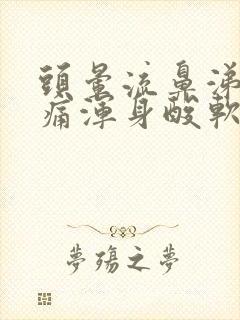 頭暈流鼻涕
痛渾身酸軟
夢殤之夢